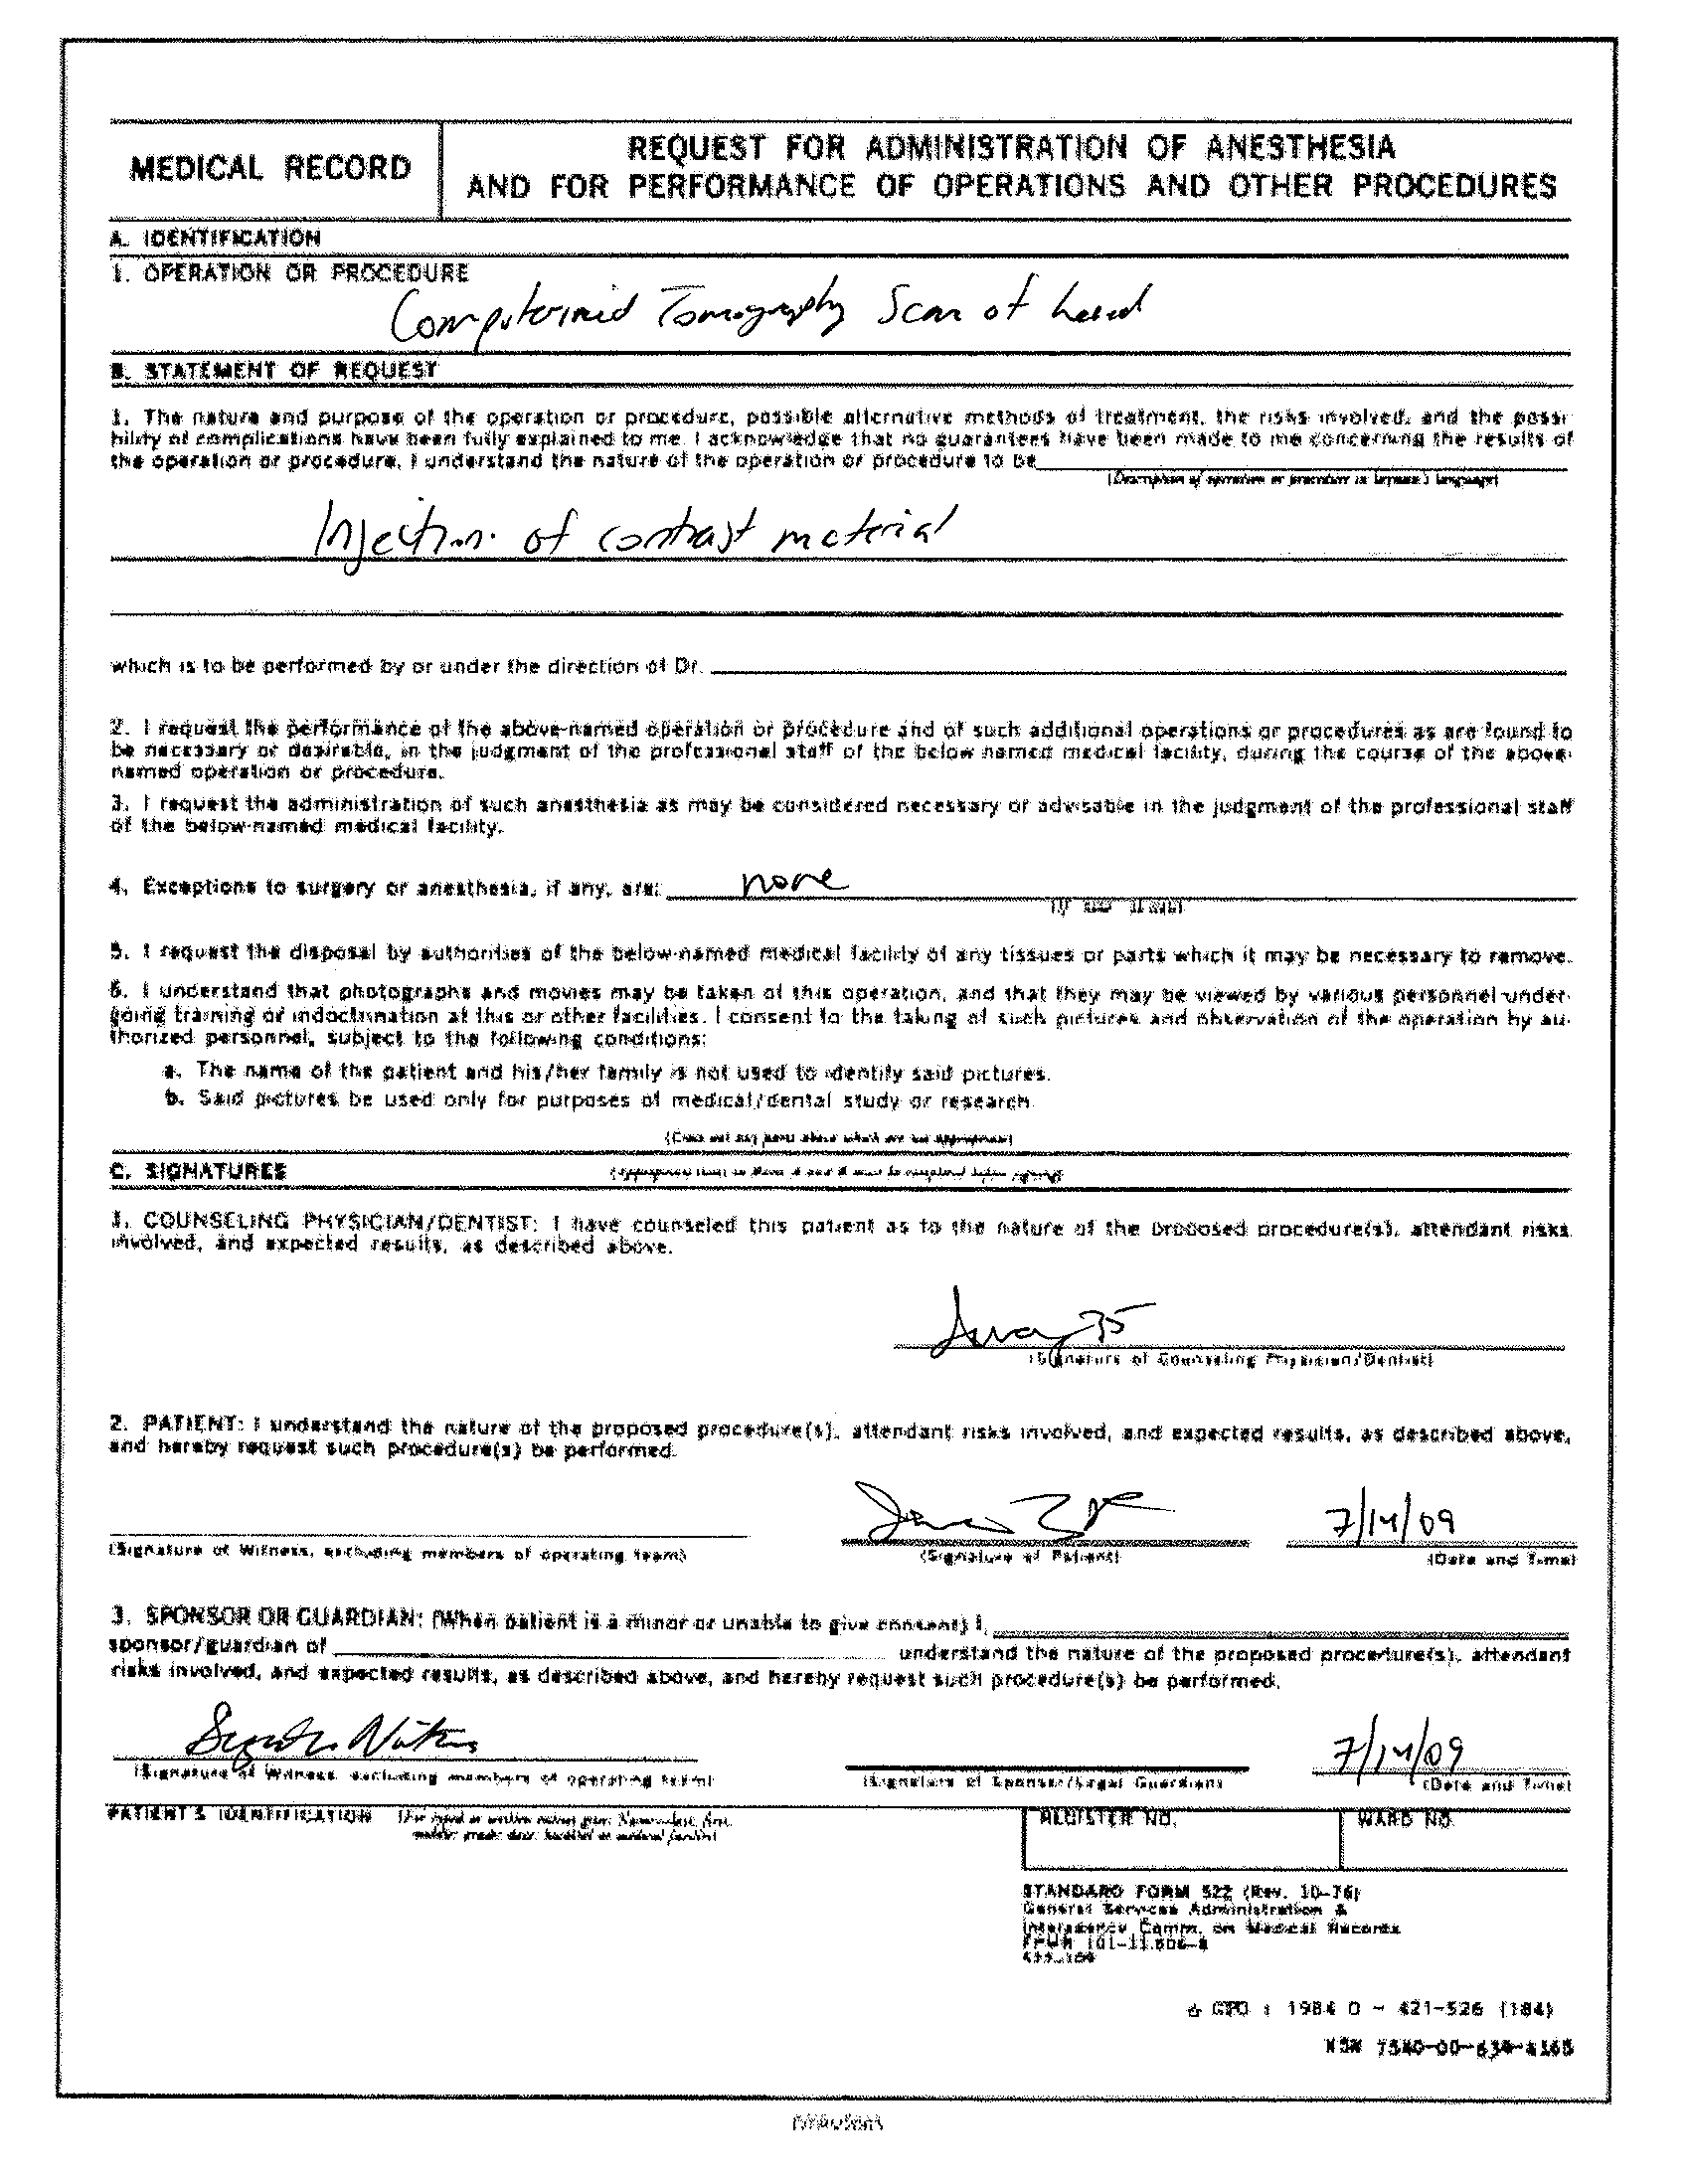 MEDICAL RECORD
REQUEST FOR ADMINISTRATION OF ANESTHESIA
AND FOR PERFORMANCE OF OPERATIONS AND OTHER PROCEDURES
A. IDENTIFICATION
1. OPERATION OR PROCEDURE
Tomography Scan of head
B. STATEMENT OF REQUEST
1. The nature and purpose of the operation or procedure, possible alternative methods of treatment, the risks involved, and the possi-
bility of complications have been fully explained to me. I acknowledge that no guarantees have been made to me concerning the results of
the operation or procedure. I understand the nature of the operation or procedure to be
(Description of operation or procedure in layman's language)
Injection of contrast material
which is to be performed by or under the direction of Dr.
2. I request the performance of the above-named operation or procedure and of such additional operations or procedures as are found to
be necessary or desirable, in the judgment of the professional staff of the below named medical facility, during the course of the above-
named operation or procedure.
3. I request the administration of such anesthesia as may be considered necessary or advisable in the judgment of the professional staff
of the below-named medical facility.
4. Exceptions to surgery or anesthesia, if any, are: none
5. I request the disposal by authorities of the below-named medical facility of any tissues or parts which it may be necessary to remove.
6. I understand that photographs and movies may be taken of this operation, and that they may be viewed by various personnel under-
going training or indoctrination at this or other facilities. I consent to the taking of such pictures and observation of the operation by au-
thorized personnel, subject to the following conditions:
a. The name of the patient and his/her family is not used to identify said pictures.
b. Said pictures be used only for purposes of medical/dental study or research.
(Cross out any parts above which are not appropriate)
C. SIGNATURES
(Appropriate items in Parts A and B must be completed before signing)
1. COUNSELING PHYSICIAN/DENTIST: I have counseled this patient as to the nature of the proposed procedure(s), attendant risks
involved, and expected results, as described above.
(Signature of Counseling Physician/Dentist)
2. PATIENT: I understand the nature of the proposed procedure(s), attendant risks involved, and expected results, as described above,
and hereby request such procedure(s) be performed.
7/14/09
(Signature of Witness, excluding members of operating team)
(Signature of Patient)
(Date and Time)
3. SPONSOR OR GUARDIAN: (When patient is a minor or unable to give consent) I,
sponsor/guardian of understand the nature of the proposed procedure(s), attendant
risks involved, and expected results, as described above, and hereby request such procedure(s) be performed.
7/14/09
(Signature of Witness, excluding members of operating team)
(Signature of Sponsor/Legal Guardian)
(Date and Time)
PATIENT'S IDENTIFICATION
REGISTER NO.
WARD NO.
STANDARD FORM 522 (Rev. 10-76)
General Services Administration &
Interagency Comm. on Medical Records
FPMR 101-11.806-8
522-109
GPO : 1984 O - 421-526 (184)
NSN 7540-00-634-4165